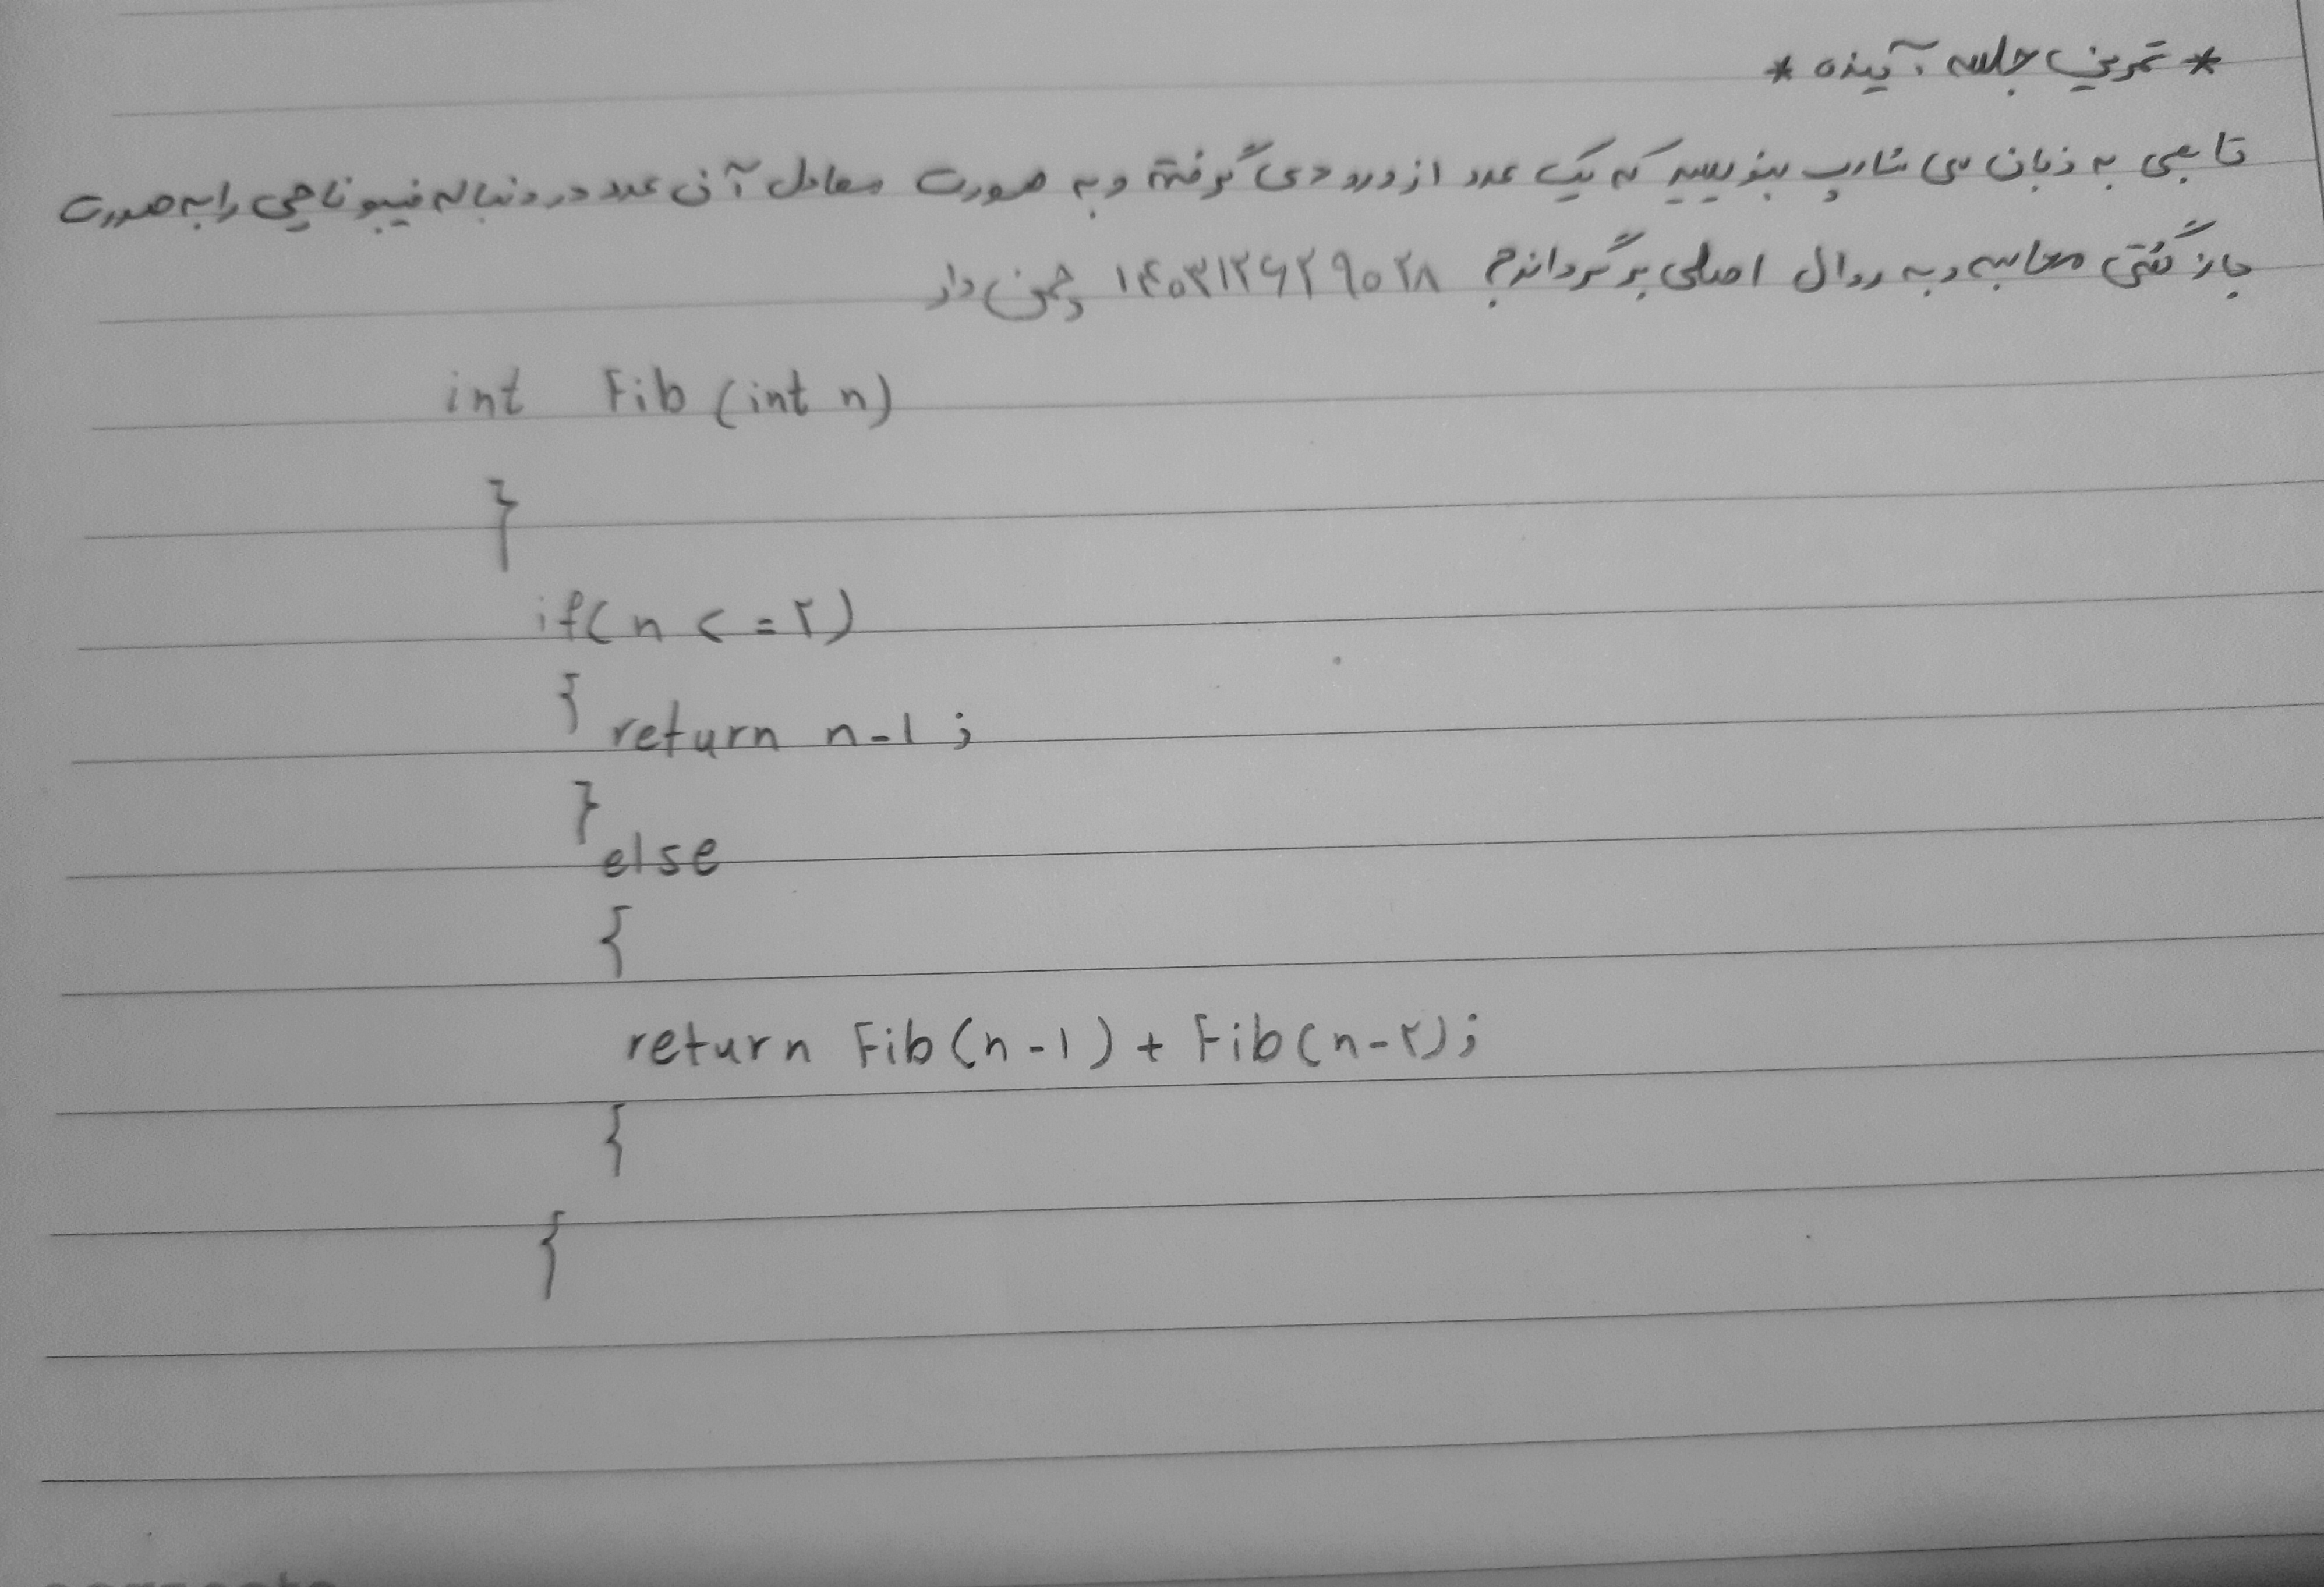 * تمرین جلسه آینده *
تابعی به زبان سی شارپ بنویسید که یک عدد از ورودی گرفته و به صورت معادل آن عدد در دنباله فیبوناچی را به صورت
بازگشتی محاسبه و به روال اصلی برگرداند؟ ۱۴۰۳۱۲۶۲۹۰۲۸
int Fib (int n)
}
if(n <= ۲)
{ return n-۱ ;
}
else
{
return Fib(n-۱) + Fib(n-۲);
{
{